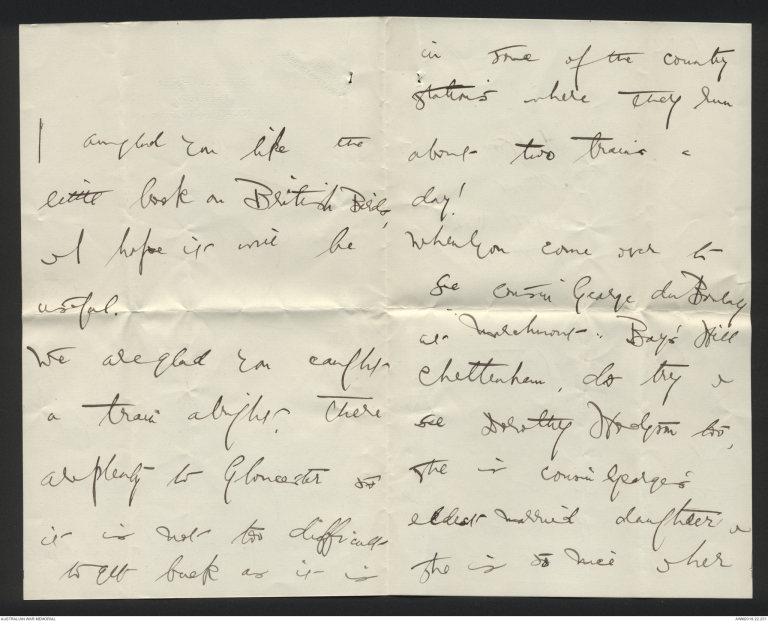 I am glad you like the
little book on British Birds,
& I hope it will be
useful.
We are glad you caught
a train alright. There
are plenty to Gloucester so
it is not too difficult
to get back as it is
in some of the country
stations where they run
about two trains a
day!
When you come over to
see cousin George du Boulay
at "Marchmont" Bay's Hill
Cheltenham, do try &
see Dorothy Hodgson too,
she is cousin George's
eldest married daughter &
she is so nice & her
AUSTRALIAN WAR MEMORIAL